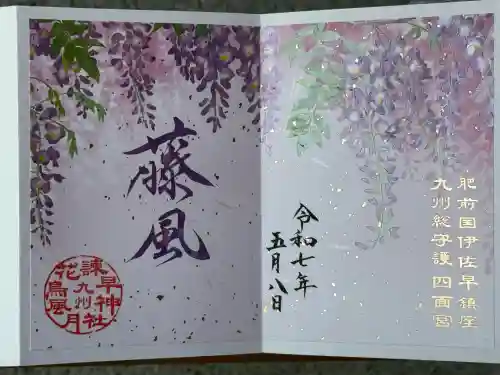 肥前国伊佐早鎮座
九州総守護四面宮
令和七年
五月八日
藤風
諫早神社
九州
花鳥風月